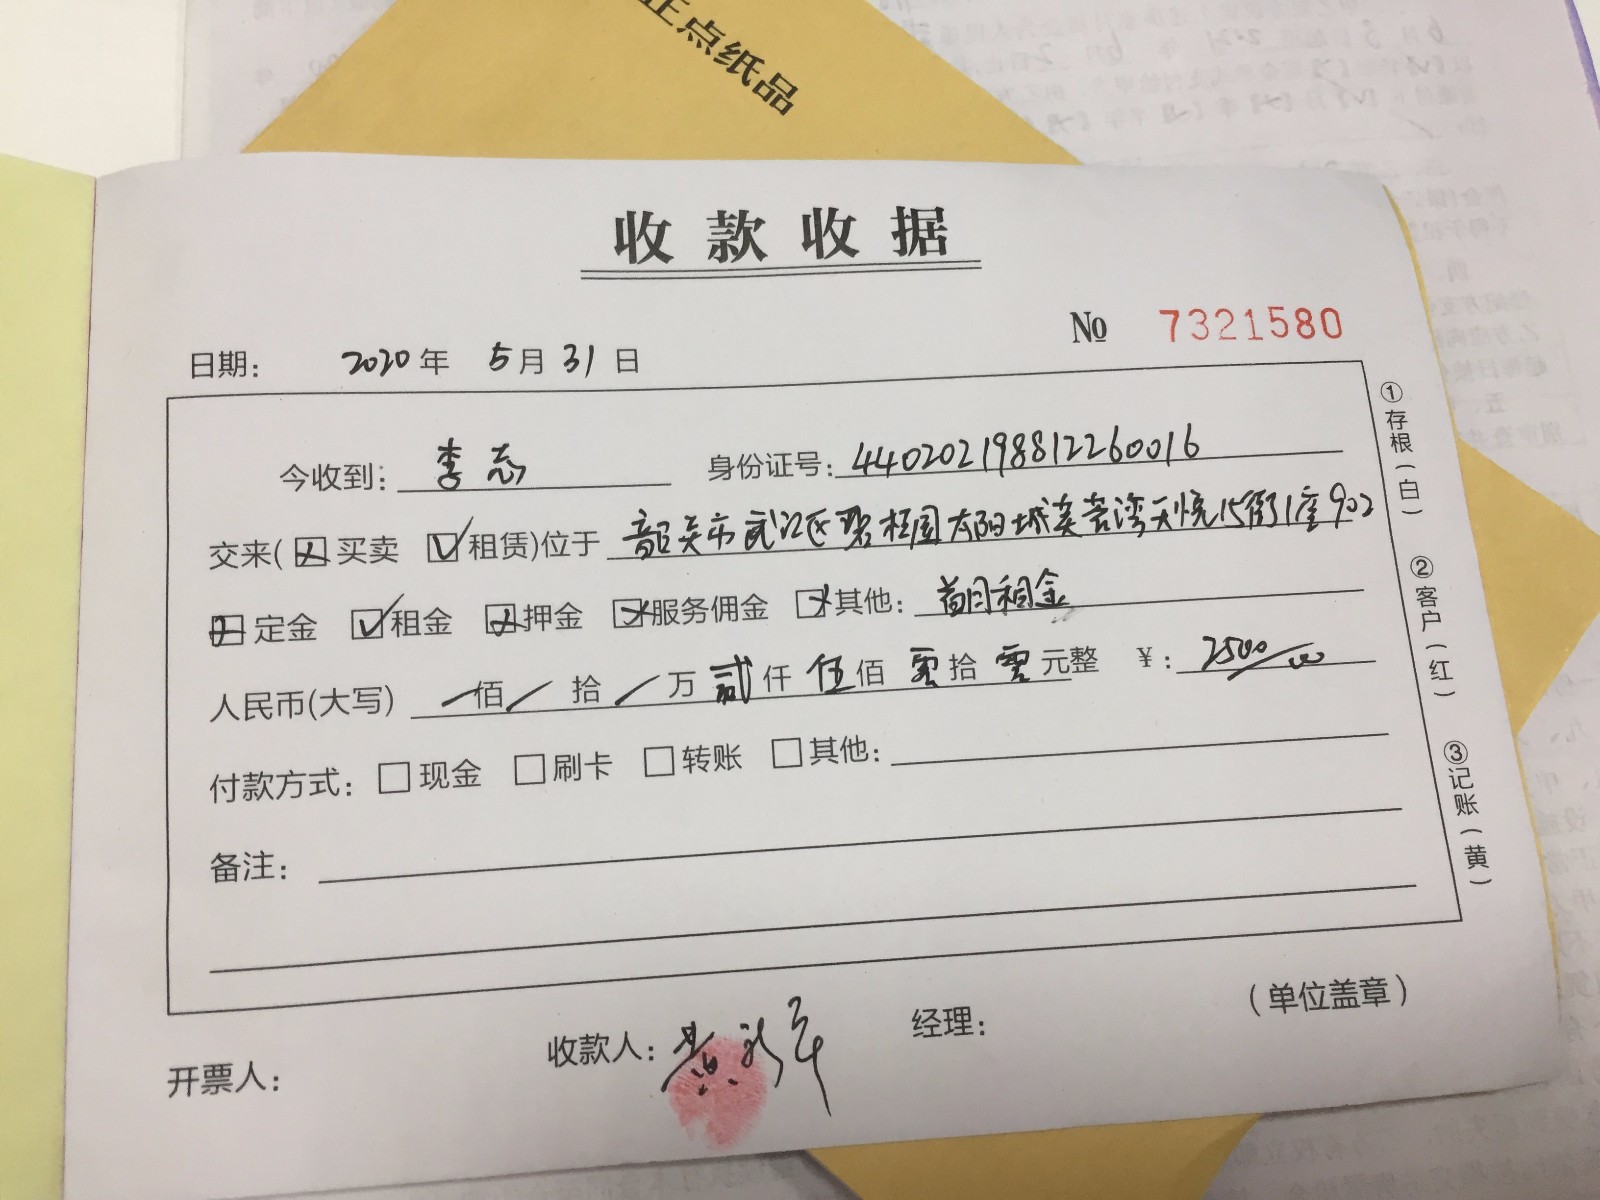 正点纸品
收款收据
No 7321580
日期： 2020年 5月31日
今收到：李志 身份证号：440202198812260016
交来(☒买卖 ☑租赁)位于 韶关市武江区碧桂园太阳城芙蓉湾天悦15街1座902
☒定金 ☑租金 ☒押金 ☒服务佣金 ☒其他：首月租金
人民币(大写) /佰/拾/万贰仟伍佰零拾零元整 ¥：2500/00
付款方式：□现金 □刷卡 □转账 □其他：
备注：
①存根(白)
②客户(红)
③记账(黄)
开票人： 收款人： 经理： (单位盖章)